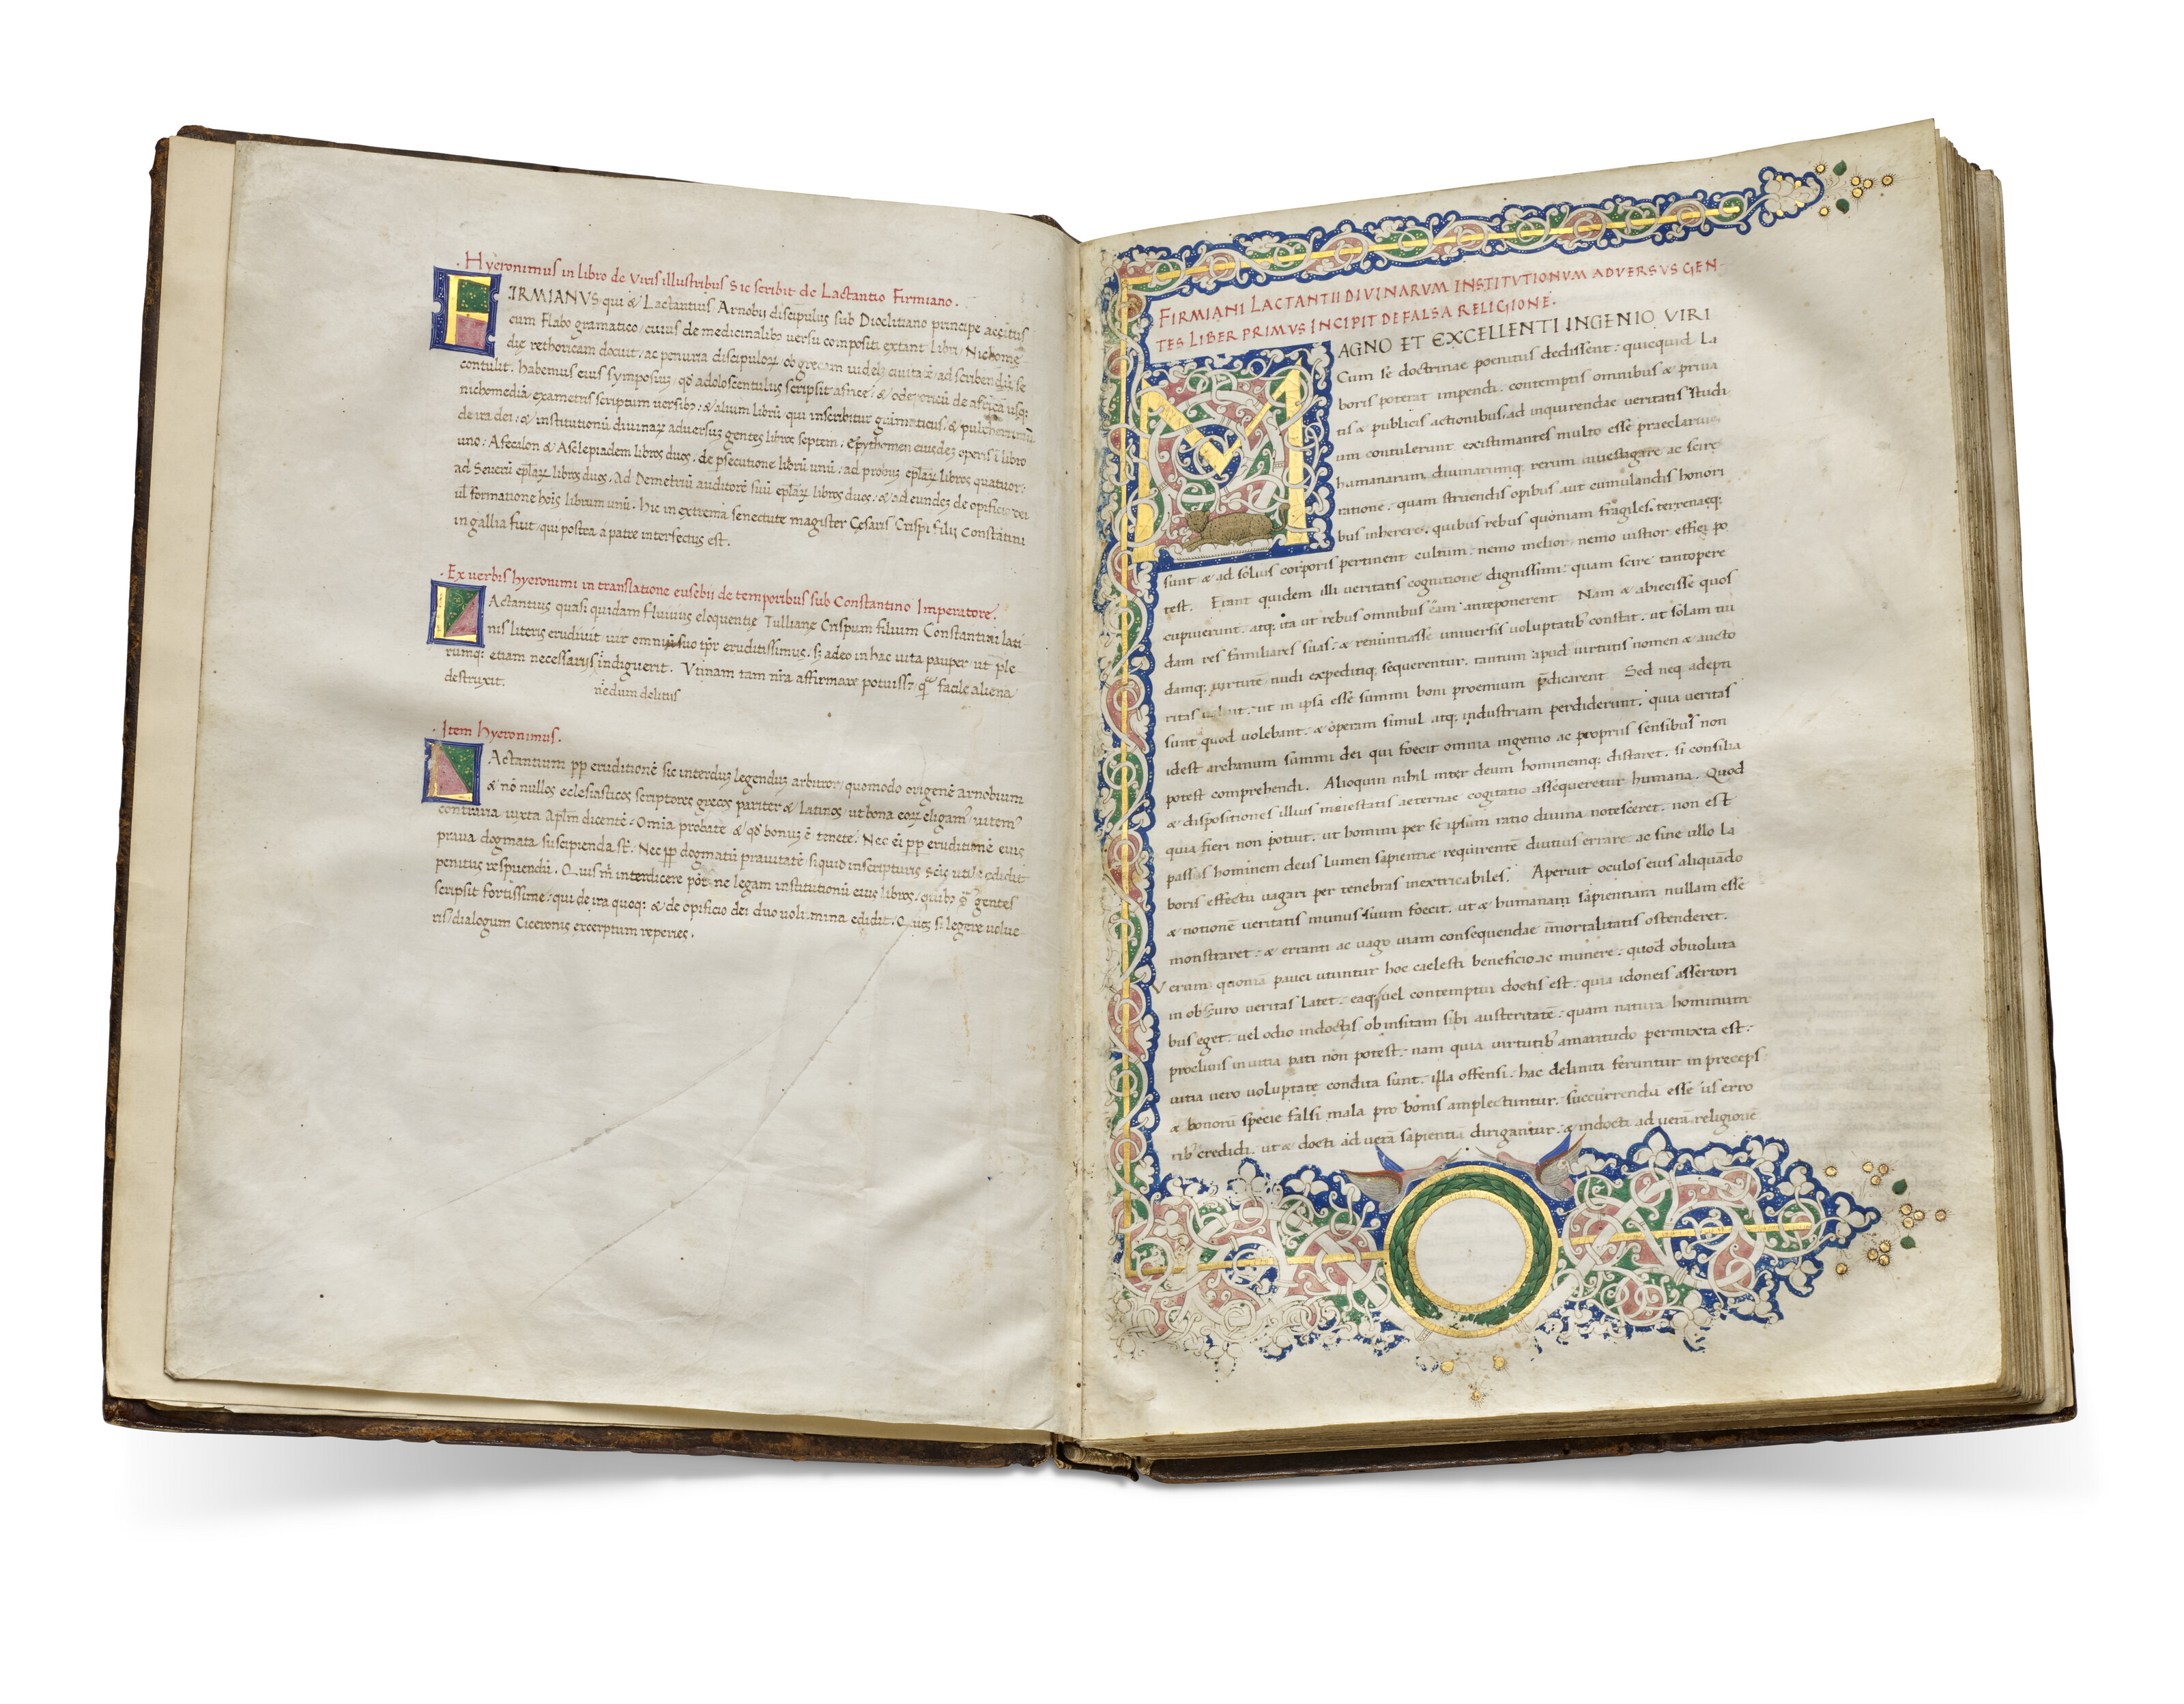 . Hyeronimus in libro de Viris illustribus sic scribit de Lactantio Firmiano .
FIRMIANVS qui & Lactantius Arnobij discipulus sub Dioclitiano principe accitus
cum Flabo gramatico / cuius de medicinalibꝫ versu compositi extant libri / Nichome
dię rethoricam docuit . ac penuria discipuloꝝ ob grecam
contulit . habemus eius symposiuꝫ / qđ adoloscentulus scripsit africę / &
nichomediā exametris scriptum versibꝫ : & alium librū qui inscribitur grāmaticus : & pulcherrimū
de ira dei : & institutionū diuinaꝝ aduersus gentes libros septem : epythomen eiusdeꝫ operis ī libro
uno : Afecalon & Asclepiadem libros duos . de psecutione librū unū . ad probuꝫ epl̄aꝝ libros quatuor :
ad Seuerū epl̄aꝝ libros duos . Ad Demetriū auditorē suū epl̄aꝝ libros duos . & ad eundeꝫ de opificio dei
ul̄ formatione hoīs librum unū . hic in extrema senectute magister Cęsaris Crispi filij Constātini
in gallia fuit / qui postea a patre interfectus est .
. Ex verbis hyeronimi in translatione eusebii de temporibus sub Constantino Imperatore .
LActantius quasi quidam fluuius eloquentię Tullianę Crispum filium Constantini lati
nis literis erudiuit uir omniū suo tp̄r eruditissimus . sꝫ adeo in hac uita pauper ut ple
rumqꝫ etiam necessarijs indiguerit . Vtinam tam nr̄a affirmare potuissꝫ q̄ facile aliena
destruxit . nedum delitiis
. Item hyeronimus .
LActantium pp eruditionē sic interduꝫ legenduꝫ arbitror / quomodo origenē arnobium
& nō nullos eclesiasticos scriptores grecos pariter & Latinos / ut bona eoꝝ eligam
contraria iuxta Apl̄m dicentē : Omīa probate & qđ bonuꝫ ē tenete . Nec ei pp eruditionē eius
praua dogmata suscipienda st̄ . Nec pp dogmatū prauitatē siquid in scripturis
penitus respuendū . Quis m̄ interdicere pōt ne legam institutionū eius libros / quibꝫ gentes
scripsit fortissime / qui de ira quoqꝫ & de opificio dei duo uolumina edidit . Quos si legere uolue
ris / dialogum Ciceronis excerptum reperies .
FIRMIANI LACTANTII DIVINARVM INSTITVTIONVM ADVERSVS GEN-
TES LIBER PRIMVS INCIPIT DE FALSA RELIGIONE .
MAGNO ET EXCELLENTI INGENIO VIRI
Cum se doctrinae poenitus dedissent : quicquid La
boris poterat impendi . contemptis omnibus & priua
tis & publicis actionibus . ad inquirendae veritatis studi
um contulerunt existimantes multo esse praeclarius
humanarum diuinarumq; rerum inuestigare ac scire
ratione . quam struendis opibus aut cumulandis honori
bus inherere . quibus rebus quoniam fragiles terrenaeq;
sunt & ad solius corporis pertinent cultum . nemo melior nemo iustior effici po
test . Erant quidem illi veritatis cognitione dignissimi : quam scire tantopere
cupuierunt . atq; ita ut rebus omnibus eam anteponerent Nam & abiecisse quos
dam res familiares suas . & renuntiasse uniuersis uoluptatib' constat . ut solam nu
damq; uirtutē nudi expeditiq; sequerentur . tantum apud uirtutis nomen & aucto
ritas ualuit . ut in ipsa esse summi boni proemium p̄dicarent Sed neq; adepti
sunt quod uolebant . & operam simul atq; industriam perdiderunt . quia veritas
idest archanum summi dei qui foecit omnia ingenio ac propriis sensibus non
potest comprehendi . Alioquin nihil inter deum hominemq; distaret . si consilia
& dispositiones illius maiestatis aeternae cogitatio assequeretur humana . Quod
quia fieri non potuit . ut homini per se ipsum ratio diuina notesceret . non est
passus hominem deus lumen sapientiae requirentē diutius errare ac sine ullo La
boris effectu uagari per tenebras inextricabiles . Aperuit oculos eius aliquādo
& notionē veritatis munus suum foecit . ut & humanam sapientiam nullam esse
monstraret . & erranti ac uago uiam consequendae īmortalitatis ostenderet .
Verum quoniā pauci utuntur hoc caelesti beneficio ac munere : quod obuoluta
in obscuro veritas Latet . eaq; uel contemptui doctis est . quia idoneis assertori
bus eget . uel odio indoctis ob insitam sibi austeritatē . quam natura hominum
procliuis in uitia pati non potest . nam quia uirtutib' amaritudo permixta est .
uitia uero uoluptate condita sunt . illa offensi . hac deliniti feruntur in preceps
& bonorū specie falsi mala pro bonis amplectuntur . succurrendū esse iis erro
rib' credidi . ut & docti ad uerā sapientiā dirigantur . & indocti ad uerā religionē